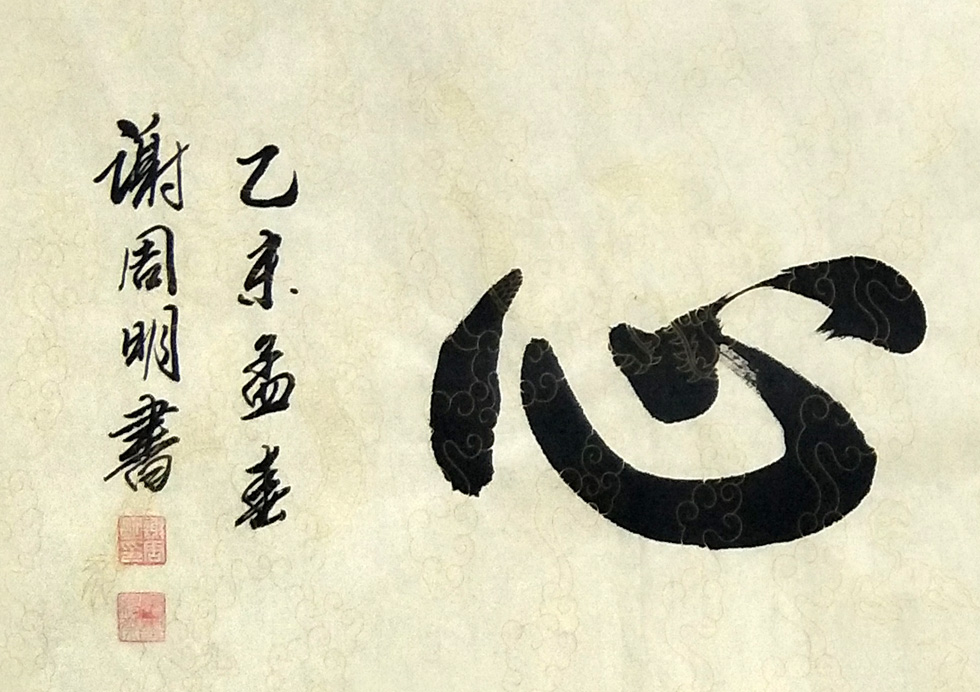 心
乙未孟春
谢周明書